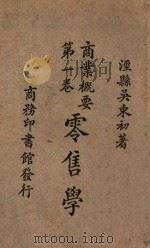 涇縣吳東初著
商業概要
第一卷
零售學
商務印書館發行